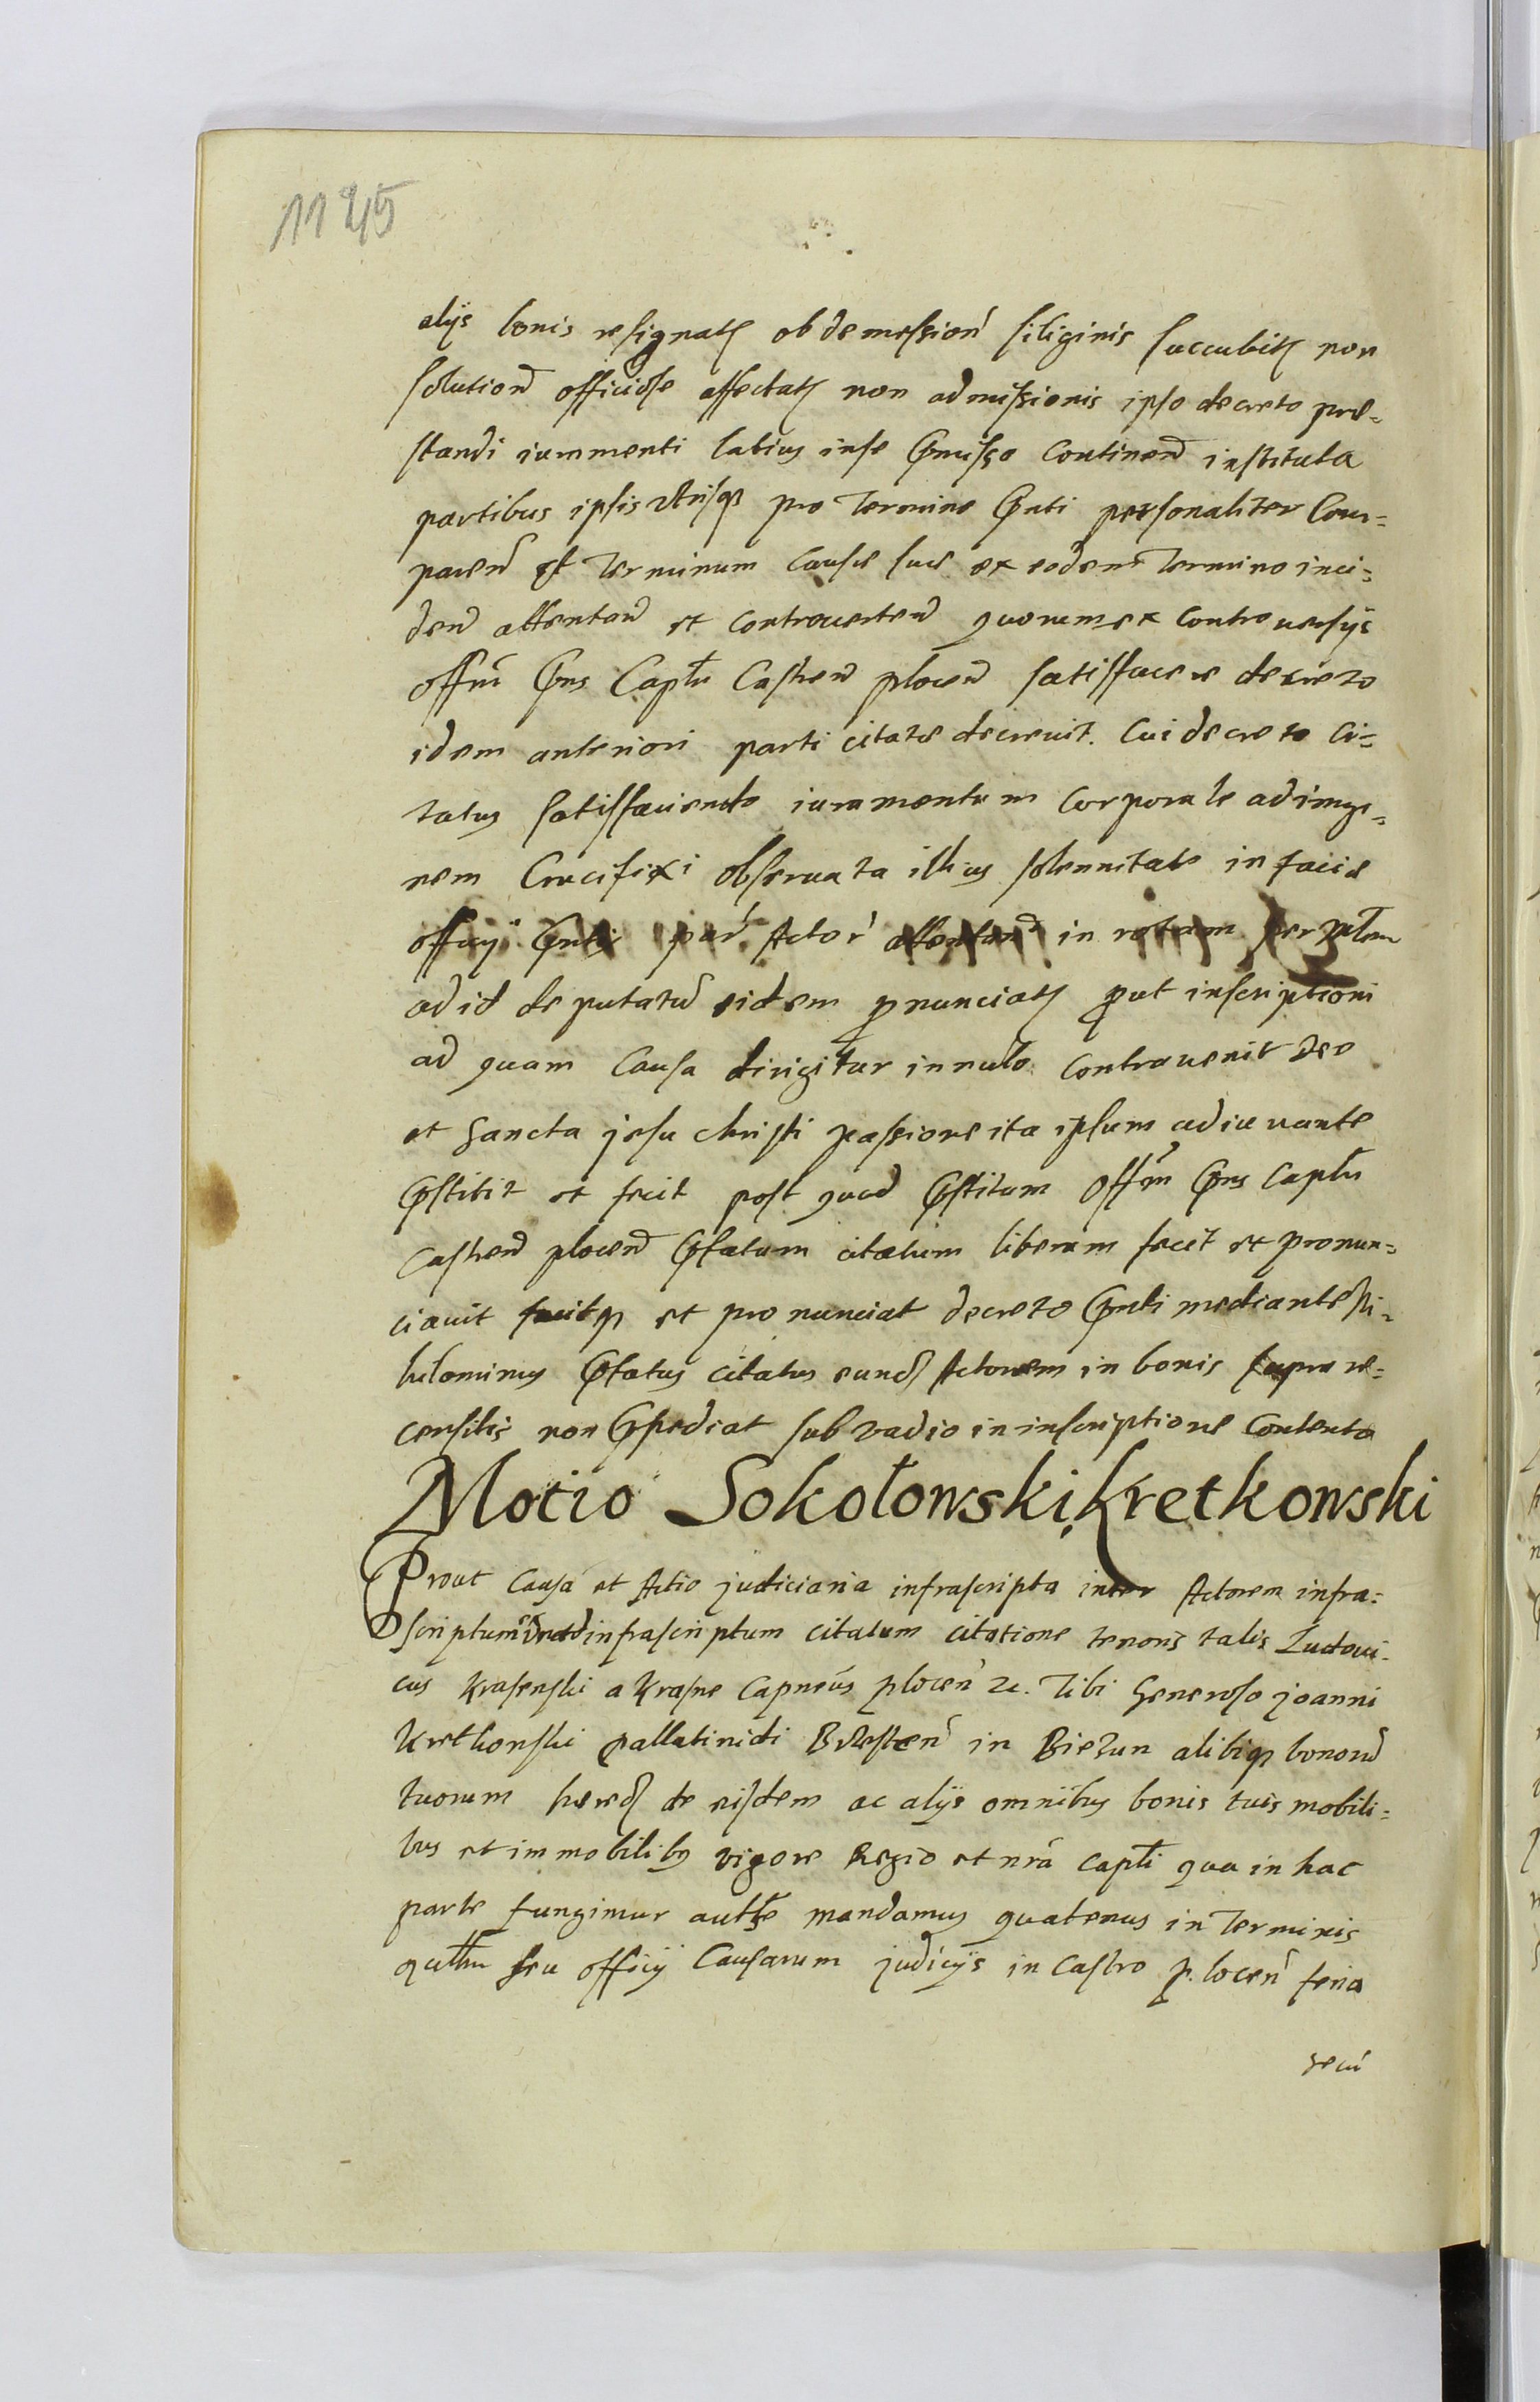 1145
alijs bonis resignat obdemession siliginis succubit non
solution officiose affectat non admissionis ipso decreto præ=
standi iuramenti latius in se præmisso continen instituta
partibus ipsis utrisque pro termino præsenti personaliter com=
paren et terminum causæ suæ ex eodem termino inci=
den attentan et controverten quorum ex controversijs
offm præns Capłn Castren plocen satisfacere decreto
idem anteriori parti citatæ decrevit. Cui decreto ci=
tatus satisfaciendo iuramentum corporale ad imagi=
nem Crucifixi observata illius solennitate in facie
officij præntis par Actor attentan in rotam per
ad id deputatum eidem pronunciat prout inscriptioni
ad quam causa dirigitur in nullo contravenit Deo
et Sancta jesu christi passione ita ipsum adiuvante
præstitit et fecit post quod præstitum offm præns capłn
castren plocen præfatum citatum liberum fecit et pronun=
ciavit facitque et pronunciat decreto prænti mediante Ni=
hilominus præfatus citatus eund Actorem in bonis supra re=
censitis non præpediat sub vadio in inscriptione contento
Motio Sokołowski, Kretkowski
Prout causa et Actio judiciaria infrascripta inter Actorem infra=
scriptum et infrascriptum citatum citatione tenoris talis Ludovi=
cus Krasenski a Krasne Capneus plocen &c. Tibi Generoso joanni
Kretkonski pallatinidi Brzesten in Biezun alibique bonorum
tuorum hæred de eisdem ac alijs omnibus bonis tuis mobili=
bus et immobilibus vigore Regio et nra capłi qua in hac
parte fungimur autħte mandamus quatenus in terminis
querellarum seu officij Causarum judicijs in castro plocen feria
secu